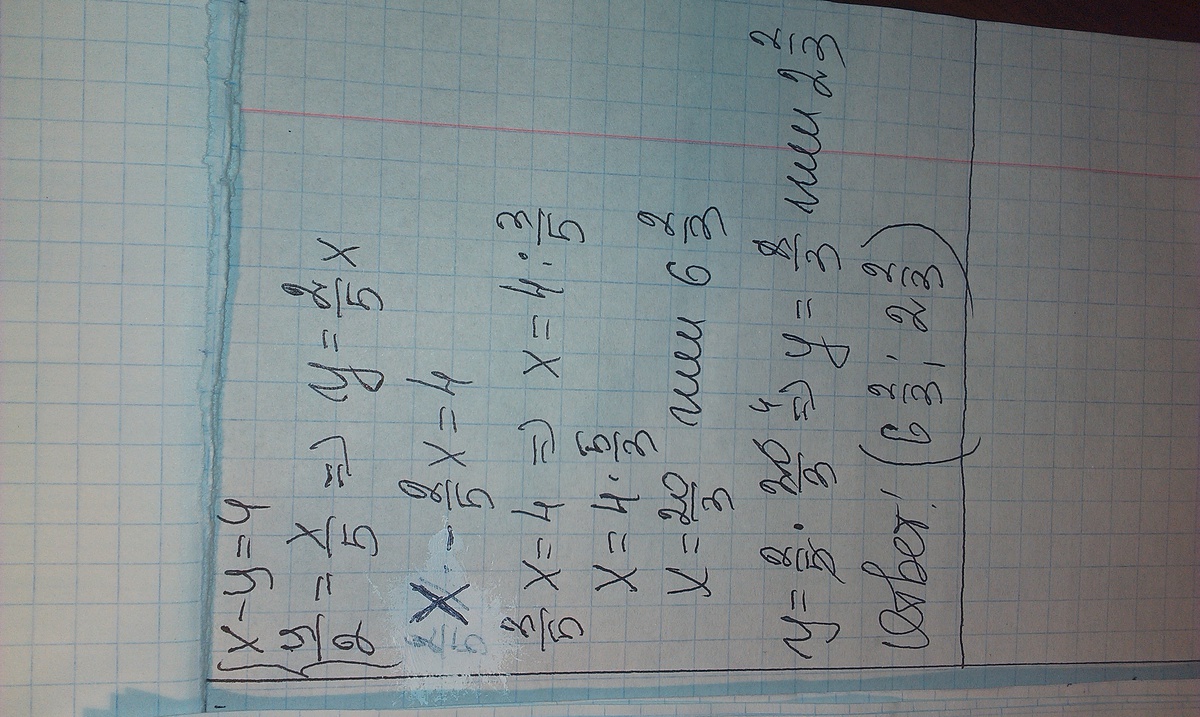 { x - y = 4
y/2 = x/5 => y = 2/5 x
x - 2/5 x = 4
3/5 x = 4 => x = 4 : 3/5
x = 4 · 5/3
x = 20/3 или 6 2/3
y = 2/5 · 20/3 4 => y = 8/3 или 2 2/3
Ответ: (6 2/3; 2 2/3)